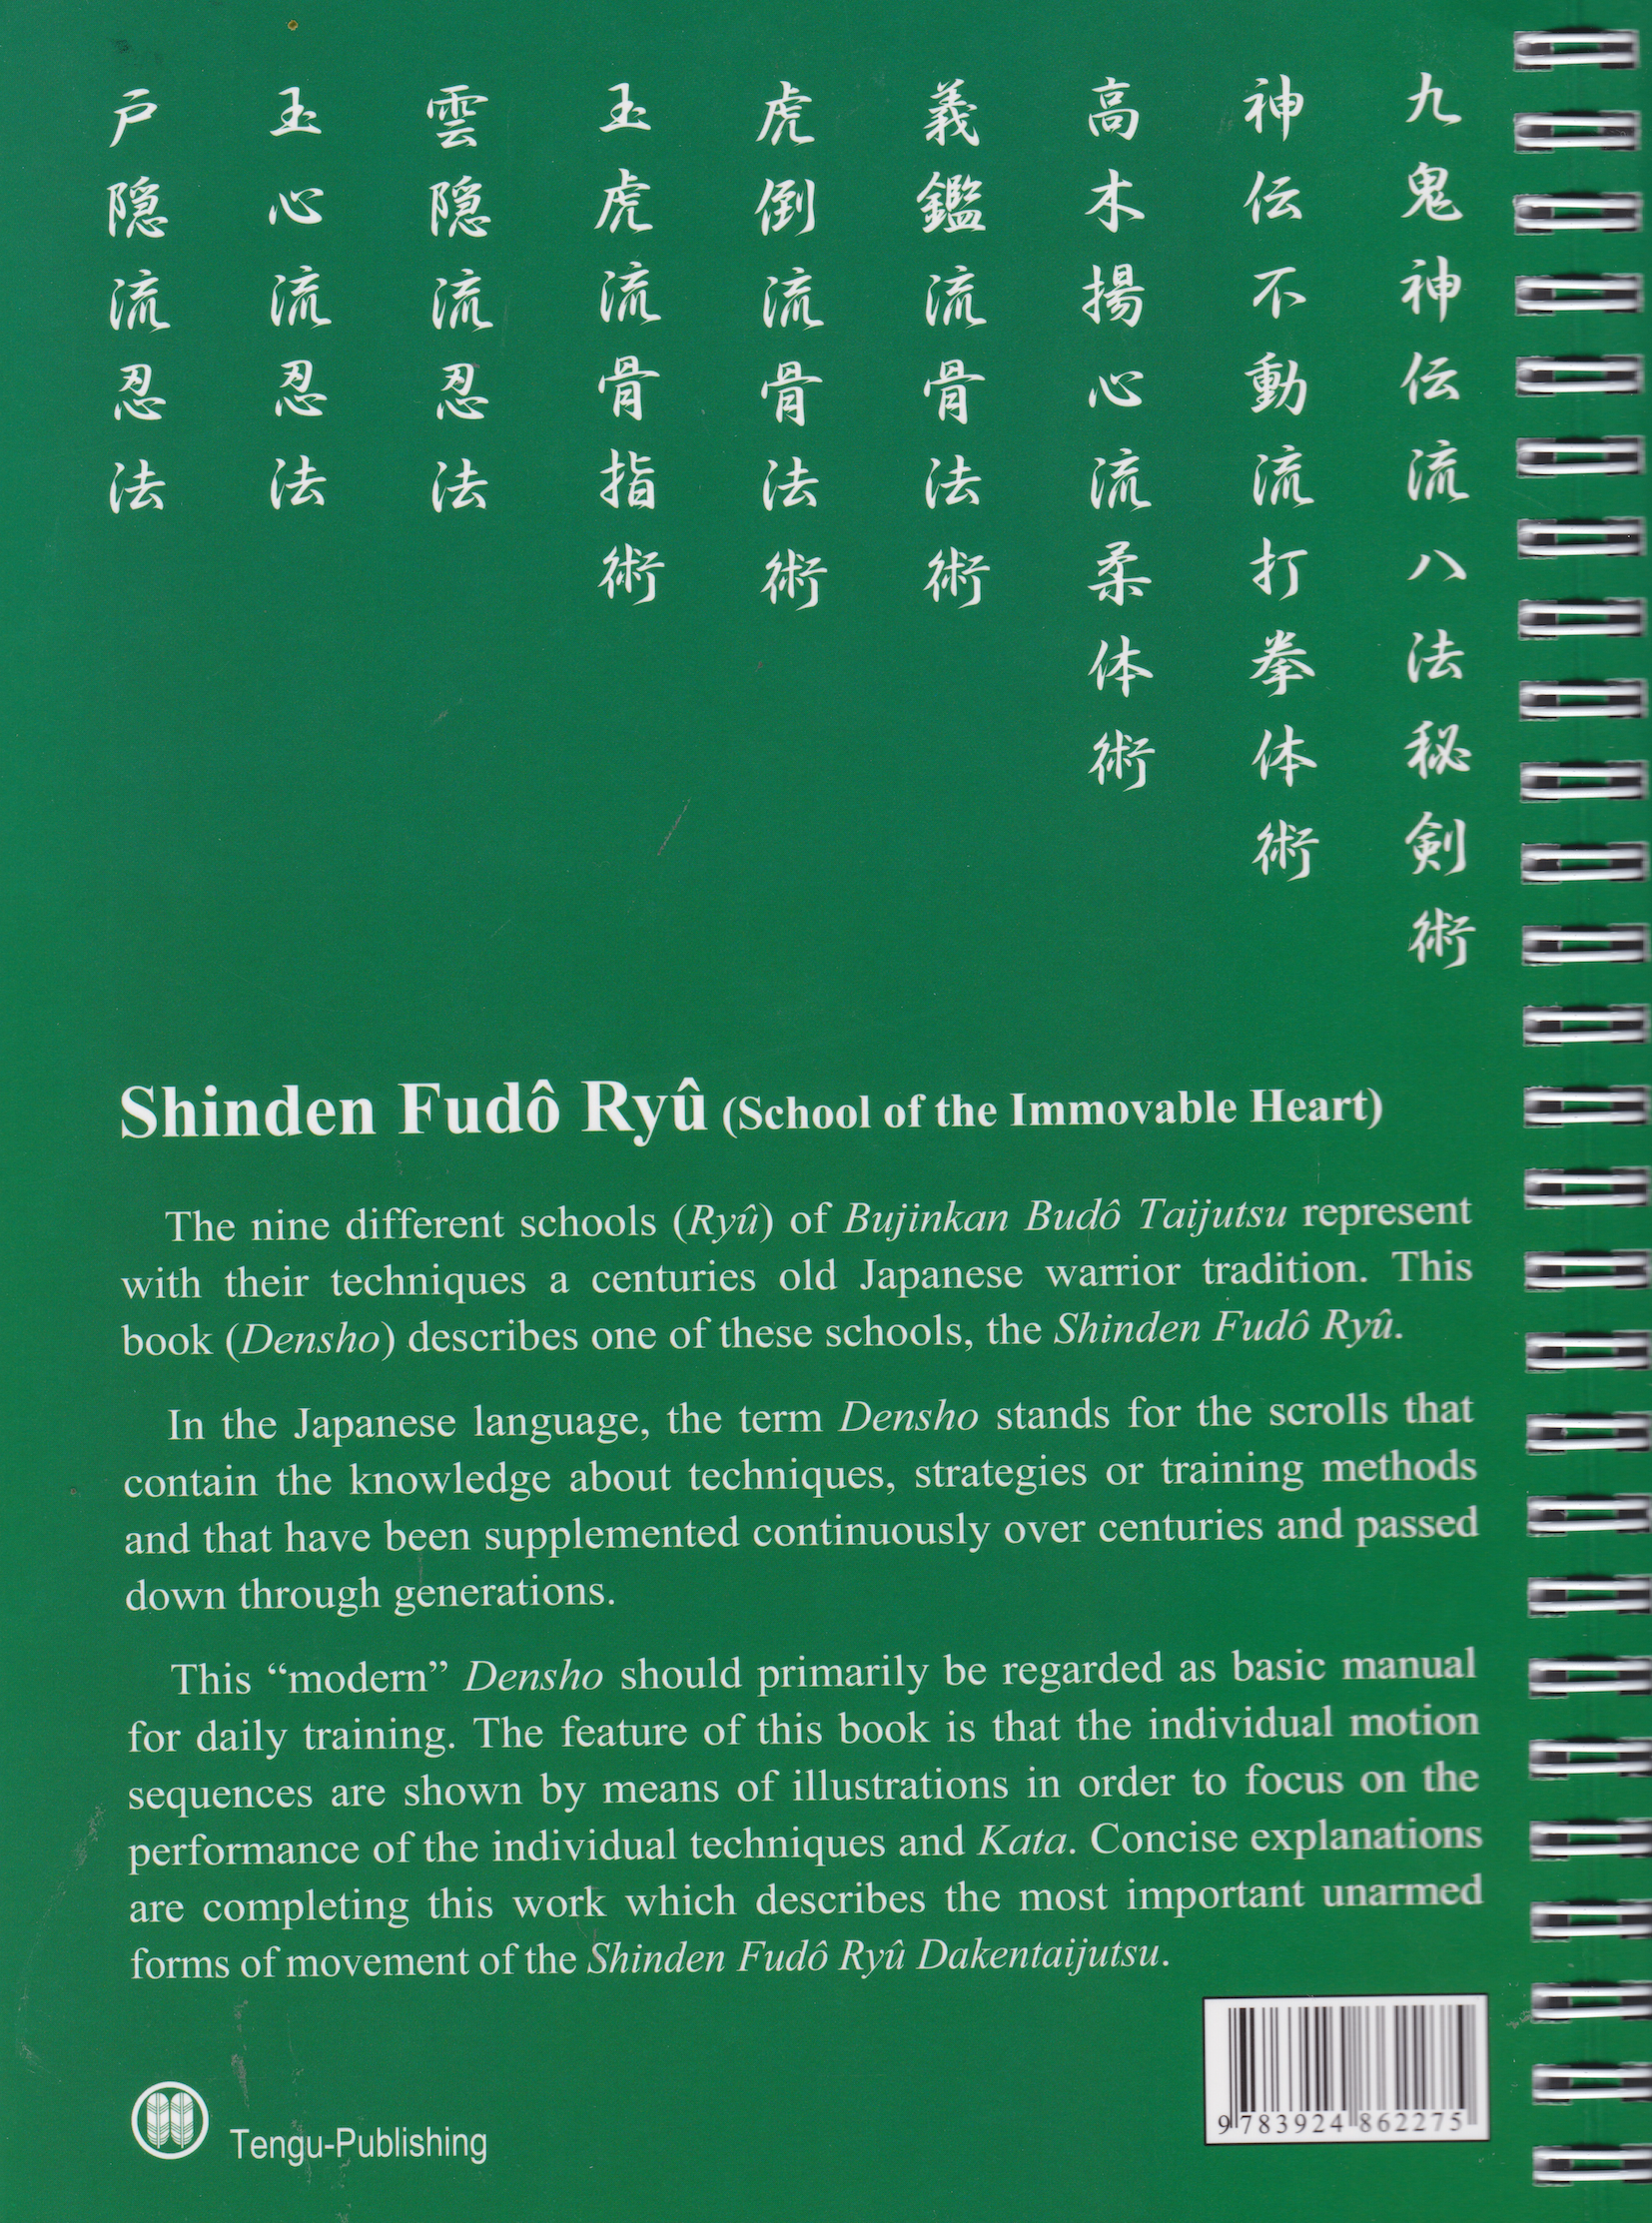 九鬼神伝流八法秘剣術
神伝不動流打拳体術
高木揚心流柔体術
義鑑流骨法術
虎倒流骨法術
玉虎流骨指術
雲隠流忍法
玉心流忍法
戸隠流忍法
Shinden Fudô Ryû (School of the Immovable Heart)
The nine different schools (Ryû) of Bujinkan Budô Taijutsu represent
with their techniques a centuries old Japanese warrior tradition. This
book (Densho) describes one of these schools, the Shinden Fudô Ryû.
In the Japanese language, the term Densho stands for the scrolls that
contain the knowledge about techniques, strategies or training methods
and that have been supplemented continuously over centuries and passed
down through generations.
This “modern” Densho should primarily be regarded as basic manual
for daily training. The feature of this book is that the individual motion
sequences are shown by means of illustrations in order to focus on the
performance of the individual techniques and Kata. Concise explanations
are completing this work which describes the most important unarmed
forms of movement of the Shinden Fudô Ryû Dakentaijutsu.
9 783924 862275
Tengu-Publishing